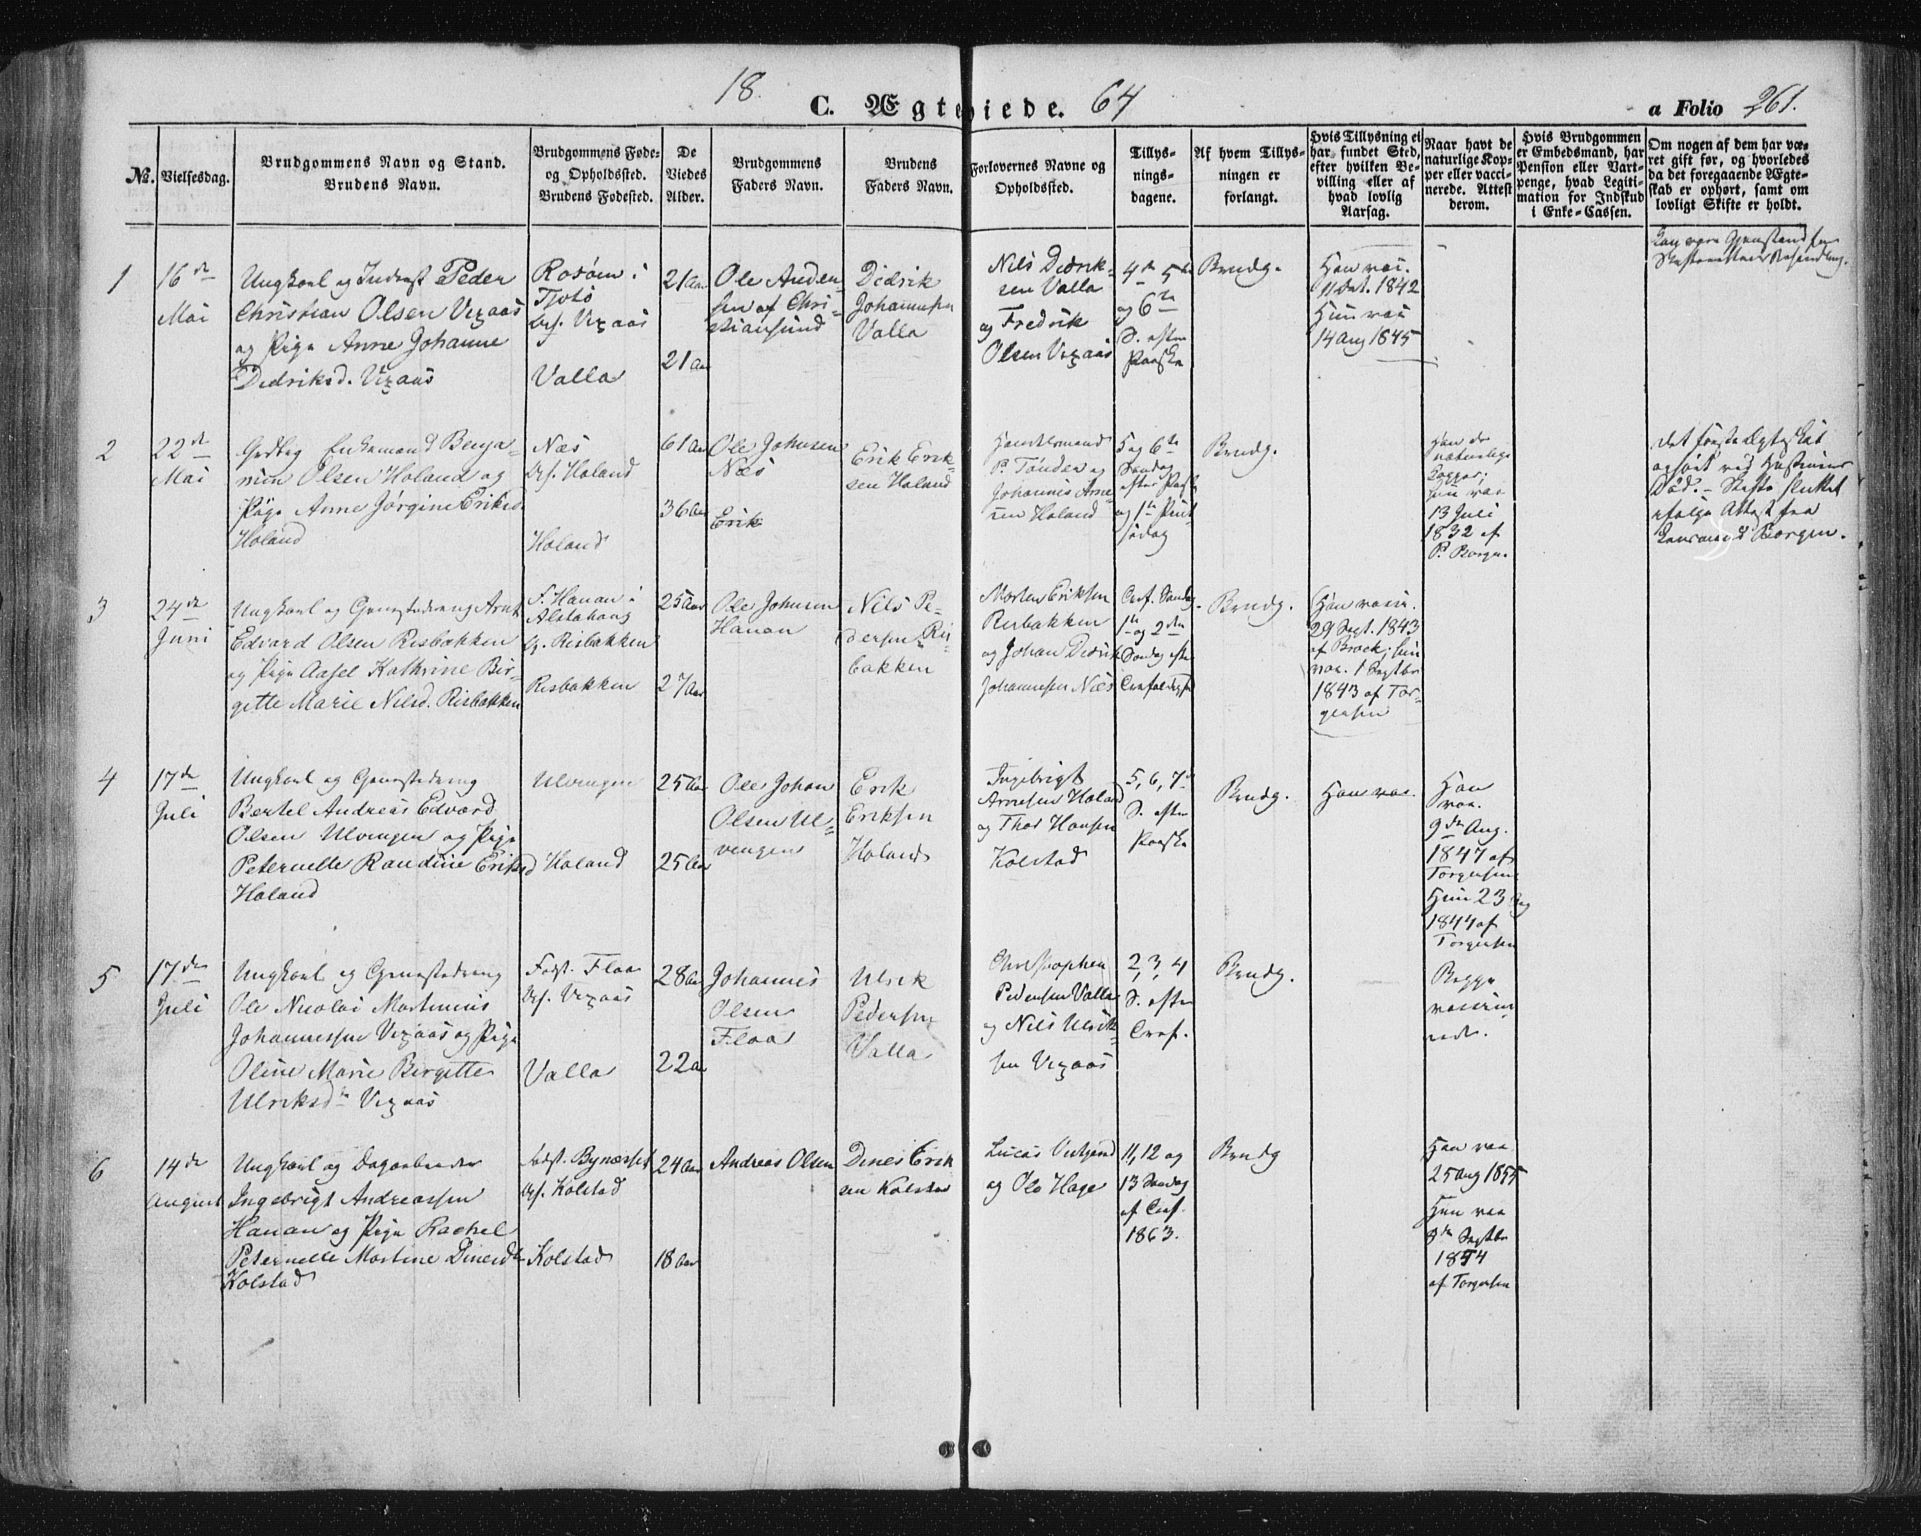 18
C. Ægteviede.
64
a Folio 261.
No.
Vielsesdag.
Brudgommens Navn og Stand.
Brudens Navn.
Brudgommens Føde-
og Opholdssted.
Brudens Fødested.
De
Viedes
Alder.
Brudgommens
Faders Navn.
Brudens
Faders Navn.
Forlovernes Navne og
Opholdssted.
Tillys-
nings-
dagene.
Af hvem Tillys-
ningen er
forlangt.
Hvis Tillysning ei
har fundet Sted,
efter hvilken Be-
villing eller af
hvad lovlig
Aarsag.
Naar havt de
naturlige Kop-
per eller vacci-
nerede. Attest
derom.
Hvis Brudgommen
er Embedsmand, har
Pension eller Vart-
penge, hvad Legiti-
mation for Indskud
i Enke-Cassen.
Om nogen af dem har væ-
ret gift før, og hvorledes
da det foregaaende Ægte-
skab er ophørt, samt om
lovligt Skifte er holdt.
1
16de
Mai
Ungkarl og Peder
Christian Olsen Vexaas
og Pige Anne Johanne
Didriksd. Vexaas
Rosøen i
Tjøtø
Vexaas
Valla
21 Aar
21 Aar
Ole Ander-
sen af Chri-
stiansund
Didrik
Johannesen
Valla
Nils Didrik-
sen Valla
og Fredrik
Olsen Vexaas
4de 5te
og 6te
S. efter
Paaske
Brudg.
Han vac.
11 1842
Hun vac.
14 Aug 1845
2
22de
Mai
Enkemand Benja-
min Olsen Holand og
Pige Anne Jørgine Eriksd.
Holand
Næs
Holand
Holand
61 Aar
36 Aar
Ole Johnsen
Næs
Erik
Erik Erik-
sen Holand
P. Tønder og
Johannes Arne-
sen Holand
5 og 6te
Søndag
efter Paaske
og 1te Pint-
sedag
Brudg.
Han de
naturlige
Kopper,
hun vac
13 Juli
1832 af
P. Borgen.
Det første Ægteskab
ophørt ved Hustruens
Død. - Skifte sluttet
ifølge Attest fra
Borgen.
3
24de
Juni
Ungkarl og Arnt
Edvard Olsen Risbakken
og Pige Aasel Kathrine Bir-
gitte Marie Nilsd. Risbakken
F. Hanan i
Alstahaug
Risbakken
Risbakken
25 Aar
27 Aar
Ole Johnsen
Hanan
Nils Pe-
dersen Ris-
bakken
Morten Eriksen
Risbakken
og Johan Didrik
Johannesen Næs
Søndag
1te og 2den
Søndag efter
Brudg.
Han vacc.
29 Sept. 1843
af Brock, hun
vac. 1 Septbr
1843 af Tor-
gersen
4
17de
Juli
Ungkarl og
Bertel Andreas Edvard
Olsen Ulvingen og Pige
Peternelle Randine Eriksd
Holand
Ulvingen
Holand
25 Aar
25 Aar
Ole Johan
Olsen Ul-
vengen
Erik
Eriksen
Holand
Ingebrigt
Arnesen Holand
og Thor Hansen
Kolstad
5, 6, 7de
S. efter
Paaske
Brudg.
Han vac.
Han
vac.
9de Aug.
1847 af
Torgersen
Hun 23 Aug
1844 af
Torgersen
5
17de
Juli
Ungkarl og
Ole Nicolai Martinus
Johannessen Vexaas og Pige
Oline Marie Birgitte
Ulriksd Vexaas
Fødst. Floa
Vexaas
Valla
28 Aar
22 Aar
Johannes
Olsen
Floa
Ulrik
Pedersen
Valla
Christopher
Pedersen Valla
og Nils Ulrik-
sen Vexaas
2, 3, 4
S. efter
Brudg.
Begge
vaccine-
rede.
6
14de
August
Ungkarl og Dagarbeider
Ingebrigt Andreassen
Hanan og Pige Rachel
Peternelle Martine Dinesd
Kolstad
Fødst. Bynæsset
Kolstad
Kolstad
24 Aar
18 Aar
Andreas Olsen
Dines Erik
sen Kolstad
Lucas
og Ole Hage
11, 12 og
13 Søndag
1863.
Brudg
Han vac
25 Aug 1855
Hun vac
8de Septbr
1854
af Torgersen